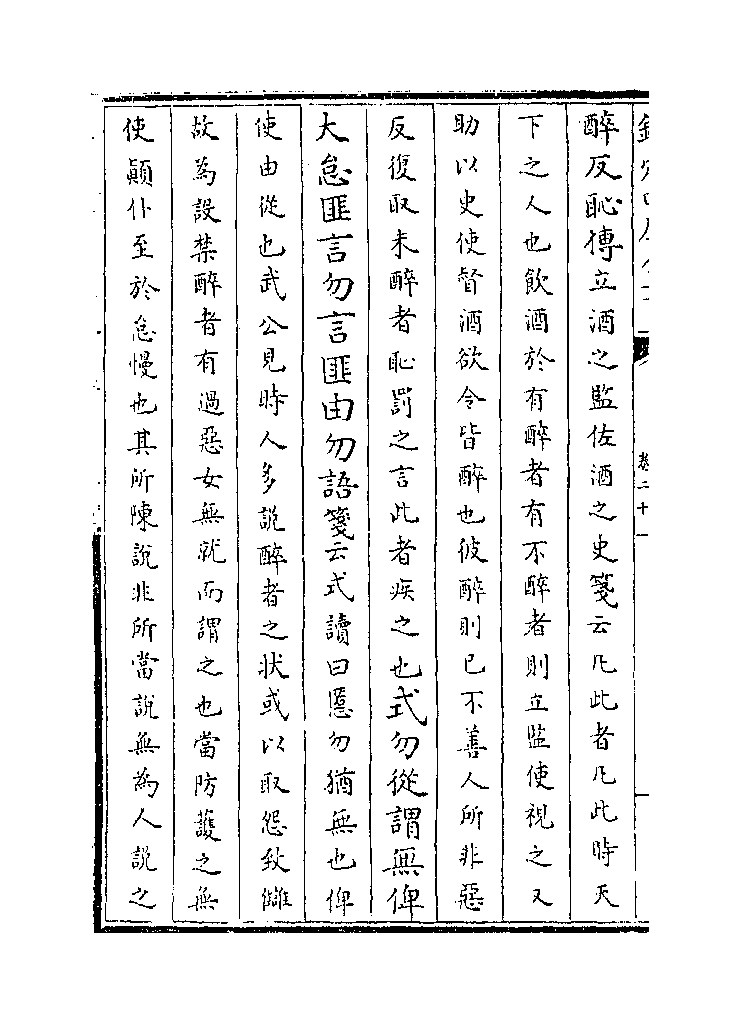 卷二十一
醉反恥傳立酒之監佐酒之史箋云凡此者凡此時天
下之人也飲酒於有醉者有不醉者則立監使視之又
助以史使督酒欲令皆醉也彼醉則已不善人所非惡
反復取未醉者恥罰之言此者疾之也式勿從謂無俾
大怠匪言勿言匪由勿語箋云式讀曰慝勿猶無也俾
使由從也武公見時人多說醉者之狀或以取怨致讎
故為設禁醉者有過惡女無就而謂之也當防護之無
使顚仆至於怠慢也其所陳說非所當說無為人說之